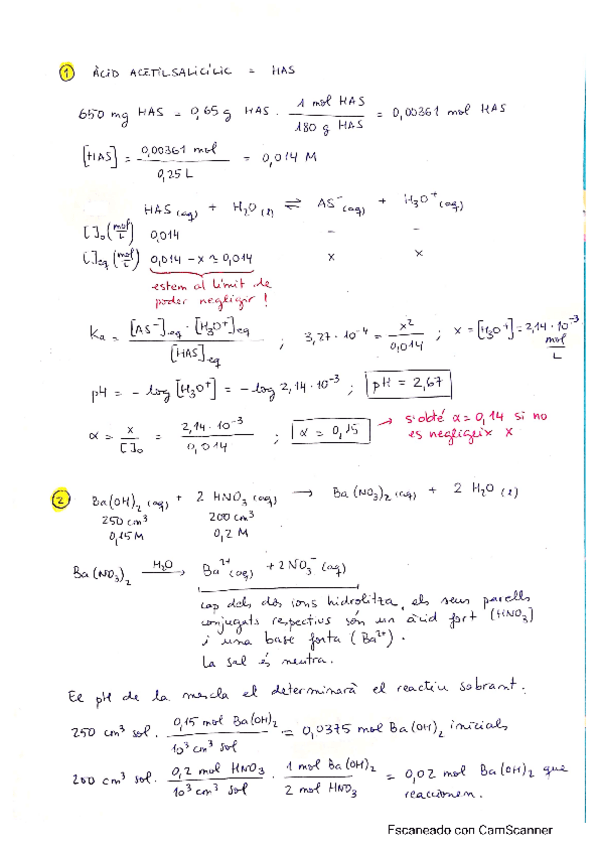 1 ÀCID ACETILSALICÍLIC = HAS
650 mg HAS = 0,65 g HAS · 1 mol HAS / 180 g HAS = 0,00361 mol HAS
[HAS] = 0,00361 mol / 0,25 L = 0,014 M
HAS (aq) + H₂O (l) ⇌ AS⁻ (aq) + H₃O⁺ (aq)
[ ]₀ (mol/L) 0,014 - -
[ ]eq (mol/L) 0,014 - x ≃ 0,014 x x
estem al límit de
poder negligir !
Ka = [AS⁻]eq · [H₃O⁺]eq / [HAS]eq ; 3,27 · 10⁻⁴ = x² / 0,014 ; x = [H₃O⁺] = 2,14 · 10⁻³ mol/L
pH = - log [H₃O⁺] = - log 2,14 · 10⁻³ ; pH = 2,67
α = x / [ ]₀ = 2,14 · 10⁻³ / 0,014 ; α = 0,15 → s'obté α = 0,14 si no
es negligeix x
2 Ba(OH)₂ (aq) + 2 HNO₃ (aq) → Ba(NO₃)₂ (aq) + 2 H₂O (l)
250 cm³ 200 cm³
0,15 M 0,2 M
Ba(NO₃)₂ H₂O → Ba²⁺ (aq) + 2 NO₃⁻ (aq)
cap dels dos ions hidrolitza, els seus parells
conjugats respectius són un àcid fort (HNO₃)
i una base forta (Ba²⁺).
La sal és neutra.
El pH de la mescla el determinarà el reactiu sobrant.
250 cm³ sol. 0,15 mol Ba(OH)₂ / 10³ cm³ sol = 0,0375 mol Ba(OH)₂ inicials
200 cm³ sol. 0,2 mol HNO₃ / 10³ cm³ sol · 1 mol Ba(OH)₂ / 2 mol HNO₃ = 0,02 mol Ba(OH)₂ que
reaccionen.
Escaneado con CamScanner